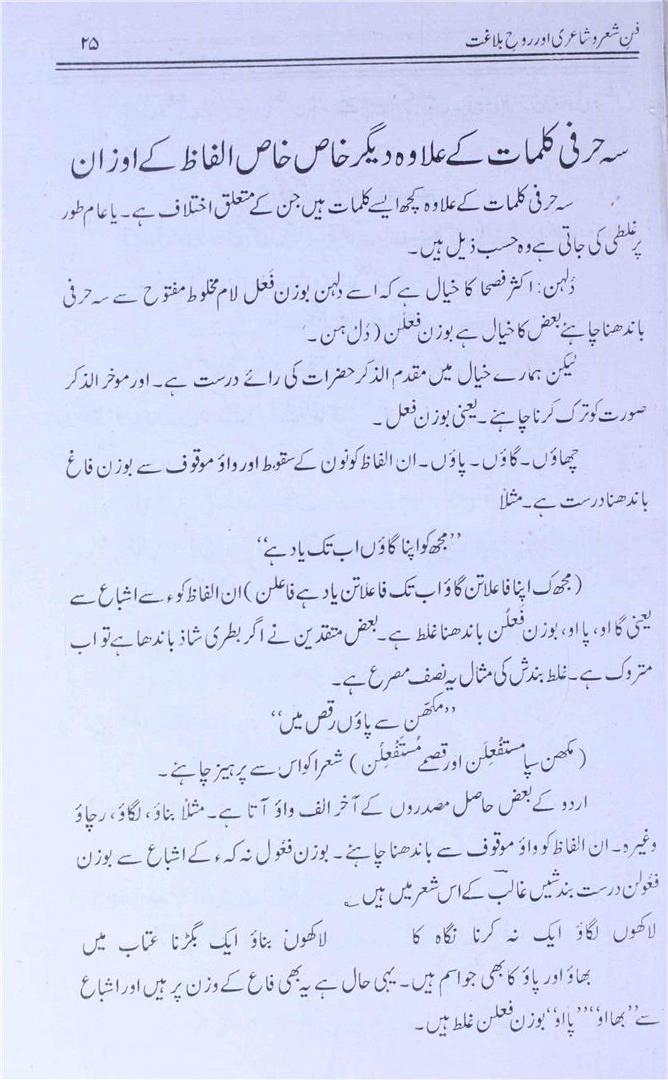 فنِ شعر و شاعری اور روحِ بلاغت ۲۵
سہ حرفی کلمات کے علاوہ دیگر خاص خاص الفاظ کے اوزان
سہ حرفی کلمات کے علاوہ کچھ ایسے کلمات ہیں جن کے متعلق اختلاف ہے۔ یا عام طور
پر غلطی کی جاتی ہے وہ حسب ذیل ہیں۔
دُلہن: اکثر فصحا کا خیال ہے کہ اسے دلہن بوزن فَعَل لام مخلوط مفتوح سے سہ حرفی
باندھنا چاہئے بعض کا خیال ہے بوزن فعلن (دُل ہن۔
لیکن ہمارے خیال میں مقدم الذکر حضرات کی رائے درست ہے۔ اور موخر الذکر
صورت کو ترک کرنا چاہئے۔ یعنی بوزن فعل۔
چھاؤں۔ گاؤں۔ پاؤں۔ ان الفاظ کو نون کے سقوط اور واؤ موقوف سے بوزن فاع
باندھنا درست ہے۔ مثلاً
”مجھ کو اپنا گاؤں اب تک یاد ہے“
(مجھ ک اپنا فاعلاتن گاؤ اب تک فاعلاتن یاد ہے فاعلن) ان الفاظ کو ء سے اشباع سے
یعنی گااو، پااو، بوزن فَعلُن باندھنا غلط ہے۔ بعض متقدین نے اگر بطری شاذ باندھا ہے تو اب
متروک ہے۔ غلط بندش کی مثال یہ نصف مصرع ہے۔
”مکھّن سے پاؤں رقص میں“
(مکھن سپا مستفعِلَن اور قصمے مُستَفعِلُن) شعرا کو اس سے پرہیز چاہئے۔
اردو کے بعض حاصل مصدروں کے آخر الف واؤ آتا ہے۔ مثلاً بناؤ، لگاؤ، رچاؤ
وغیرہ۔ ان الفاظ کو واؤ موقوف سے باندھنا چاہئے۔ بوزن فعَول نہ کہ ء کے اشباع سے بوزن
فعَولن درست بندشیں غالبؔ کے اس شعر میں ہیں ؎
لاکھوں لگاؤ ایک نہ کرنا نگاہ کا لاکھون بناؤ ایک بگڑنا عتاب میں
بھاؤ اور پاؤ کا بھی جو اسم ہیں۔ یہی حال ہے یہ بھی فاع کے وزن پر ہیں اور اشباع
سے ”بھااو“ ”پااو“ بوزن فعلن غلط ہیں۔